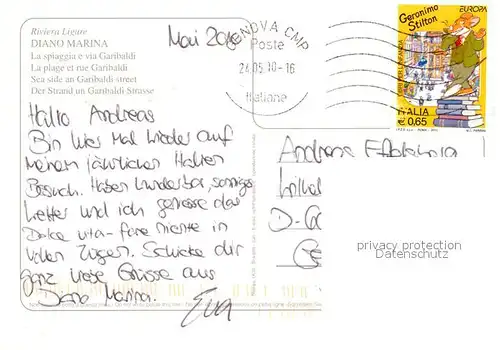 Riviera Ligure
DIANO MARINA
La spiaggia e via Garibaldi
La plage et rue Garibaldi
Sea side an Garibaldi street
Der Strand un Garibaldi Strasse
Mai 2010
GENOVA CMP
Poste
24.05.10-16
Italiane
EUROPA
Geronimo
Stilton
ITALIA
€ 0,65
Hallo Andreas
Bin hier Mal wieder auf
meinem jährlichen Italien
Besuch. Haben wunderbar, sonniges
Wetter und ich geniesse das
Dolce vita-fare niente in
vollen Zügen. Schicke dir
ganz liebe Grüsse aus
Diano Marina.
Eva
Andreas
D-
privacy protection
Datenschutz